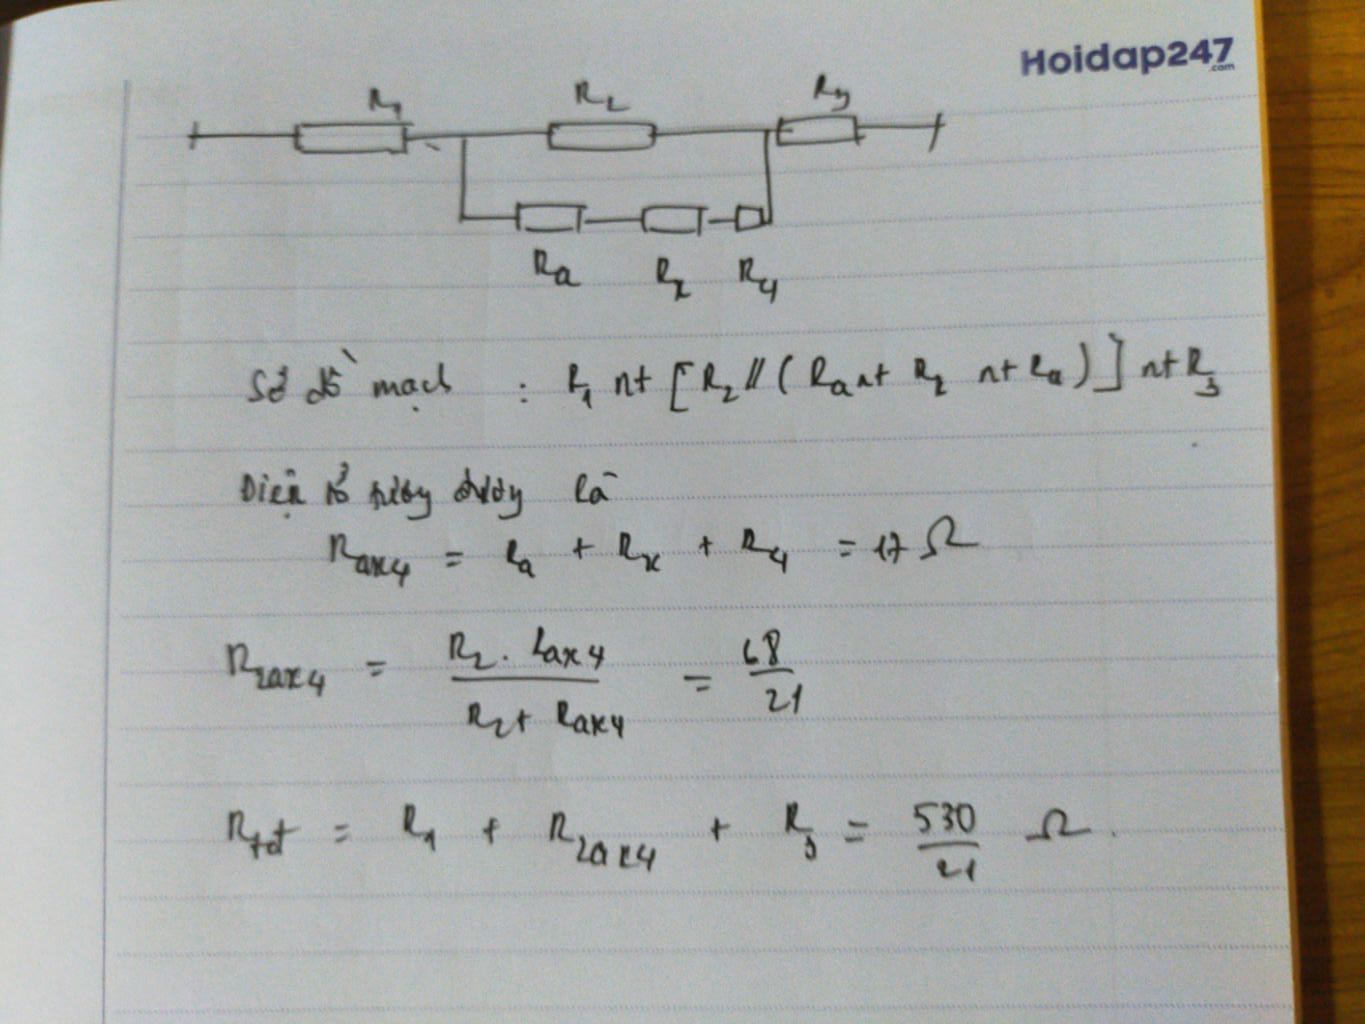 Hoidap247
.com
R₁ R₂ R₃
Rₐ Rₓ R₄
Sơ đồ mạch : R₁ nt [R₂ // (Rₐ nt Rₓ nt R₄)] nt R₃
Điện trở tương đương là
Rₐₓ₄ = Rₐ + Rₓ + R₄ = 17 Ω
R₂ₐₓ₄ = R₂ . Rₐₓ₄ / R₂ + Rₐₓ₄ = 68 / 21
Rtđ = R₁ + R₂ₐₓ₄ + R₃ = 530 / 21 Ω.